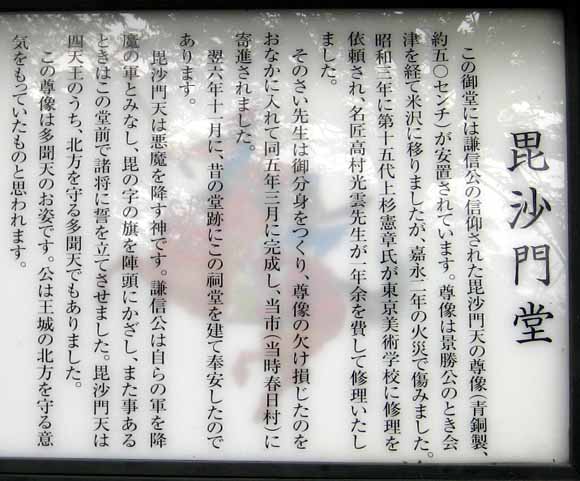 毘沙門堂
この御堂には謙信公の信仰された毘沙門天の尊像（青銅製、
約五〇センチ）が安置されています。尊像は景勝公のとき会
津を経て米沢に移りましたが、嘉永二年の火災で傷みました。
昭和三年に第十五代上杉憲章氏が東京美術学校に修理を
依頼され、名匠高村光雲先生が、一年余を費して修理いたし
ました。
そのさい先生は御分身をつくり、尊像の欠け損じたのを
おなかに入れて同五年三月に完成し、当市（当時春日村）に
寄進されました。
翌六年十一月に、昔の堂跡にこの祠堂を建て奉安したので
あります。
毘沙門天は悪魔を降す神です。謙信公は自らの軍を降
魔の軍とみなし、毘の字の旗を陣頭にかざし、また事ある
ときはこの堂前で諸将に誓を立てさせました。毘沙門天は
四天王のうち、北方を守る多聞天でもありました。
この尊像は多聞天のお姿です。公は王城の北方を守る意
気をもっていたものと思われます。